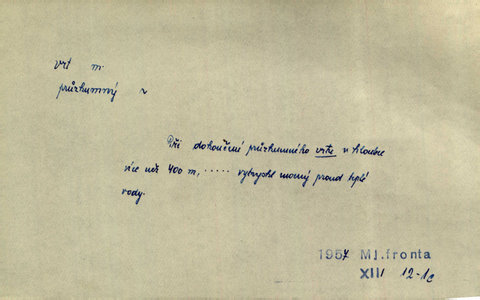 vrt m.
průzkumný ~
Při dokončení průzkumného vrtu v hloubce
více než 400 m, ..... vytryskl mocný proud teplé
vody.
1957 Ml.fronta
XIII 12-1c